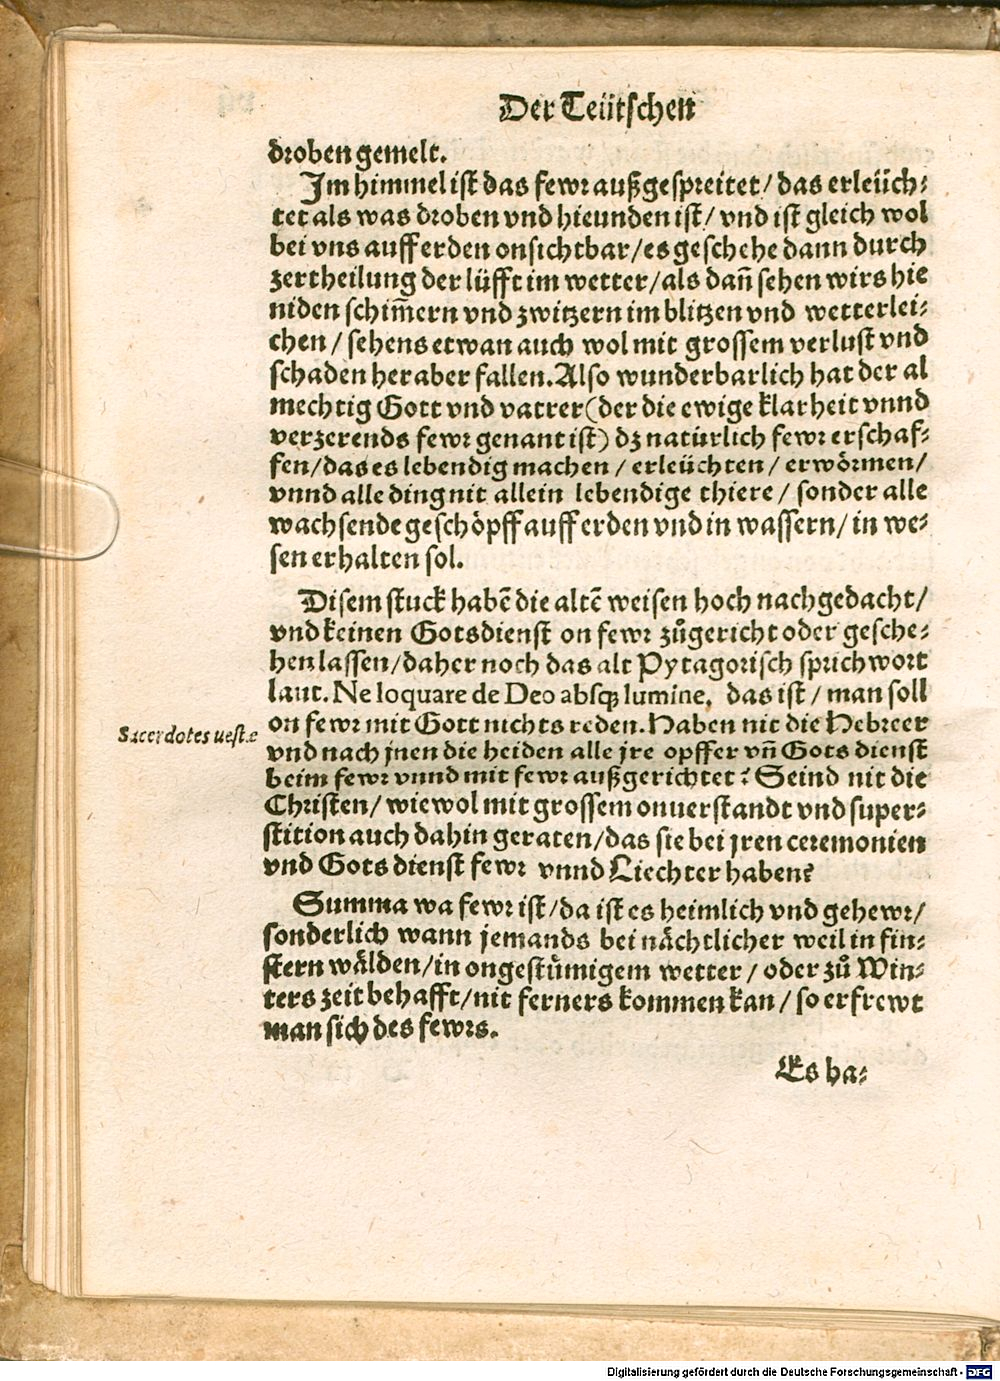 Der Teütschen
droben gemelt.
Im himmel ist das fewr außgespreitet/ das erleüch⸗
tet als was droben vnd hieunden ist/ vnd ist gleich wol
bei vns auff erden onsichtbar/ es geschehe dann durch
zertheilung der lüfft im wetter/ als dañ sehen wirs hie
niden schim̃ern vnd zwitzern im blitzen vnd wetterlei⸗
chen/ sehens etwan auch wol mit grossem verlust vnd
schaden her aber fallen. Also wunderbarlich hat der al
mechtig Gott vnd vatter (der die ewige klarheit vnnd
verzerends fewr genant ist) dz natürlich fewr erschaf⸗
fen/ das es lebendig machen/ erleüchten/ erwörmen/
vnnd alle ding nit allein lebendige thiere/ sonder alle
wachsende geschöpff auff erden vnd in wassern/ in we⸗
sen erhalten sol.
Disem stuck habẽ die altẽ weisen hoch nachgedacht/
vnd keinen Gotsdienst on fewr zůgericht oder gesche⸗
hen lassen/ daher noch das alt Pytagorisch sprichwort
laut. Ne loquare de Deo absq; lumine, das ist/ man soll
on fewr mit Gott nichts reden. Haben nit die Hebreer
Sacerdotes uestæ
vnd nach jnen die heiden alle jre opffer vñ Gots dienst
beim fewr vnnd mit fewr außgerichtet? Seind nit die
Christen/ wiewol mit grossem onuerstandt vnd super⸗
stition auch dahin geraten/ das sie bei jren ceremonien
vnd Gots dienst fewr vnnd Liechter haben?
Summa wa fewr ist/ da ist es heimlich vnd gehewr/
sonderlich wann jemands bei nächtlicher weil in fin⸗
stern wälden/ in ongestümigem wetter/ oder zů Win⸗
ters zeit behafft/ nit ferners kommen kan/ so erfrewt
man sich des fewrs.
Es ha⸗
Digitalisierung gefördert durch die Deutsche Forschungsgemeinschaft - DFG